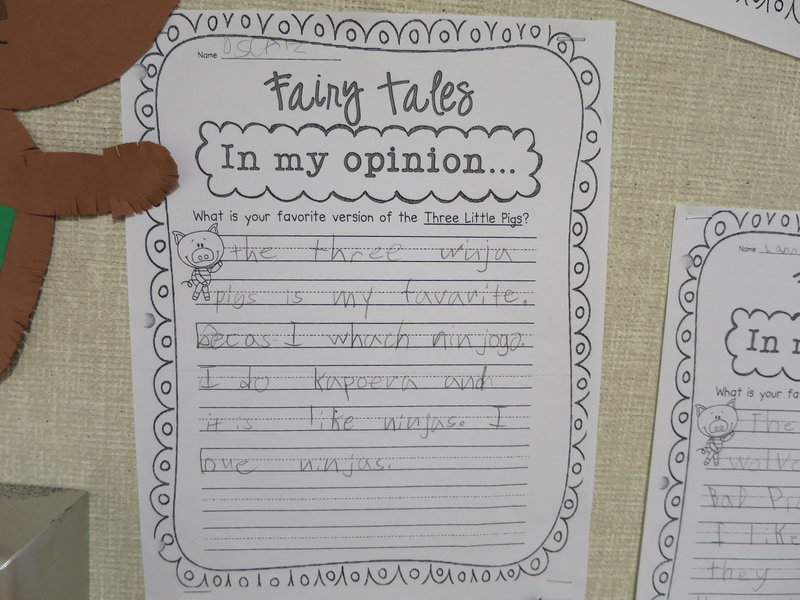 Name OSCAR
Fairy Tales
In my opinion...
What is your favorite version of the Three Little Pigs?
the three winja
pigs is my favarite.
Becas I whach ninjogo.
I do kapoera and
it is like ninjas. I
love ninjas.
Name
In m
What is your fa
The
wolve
Bad Pi
I like
they